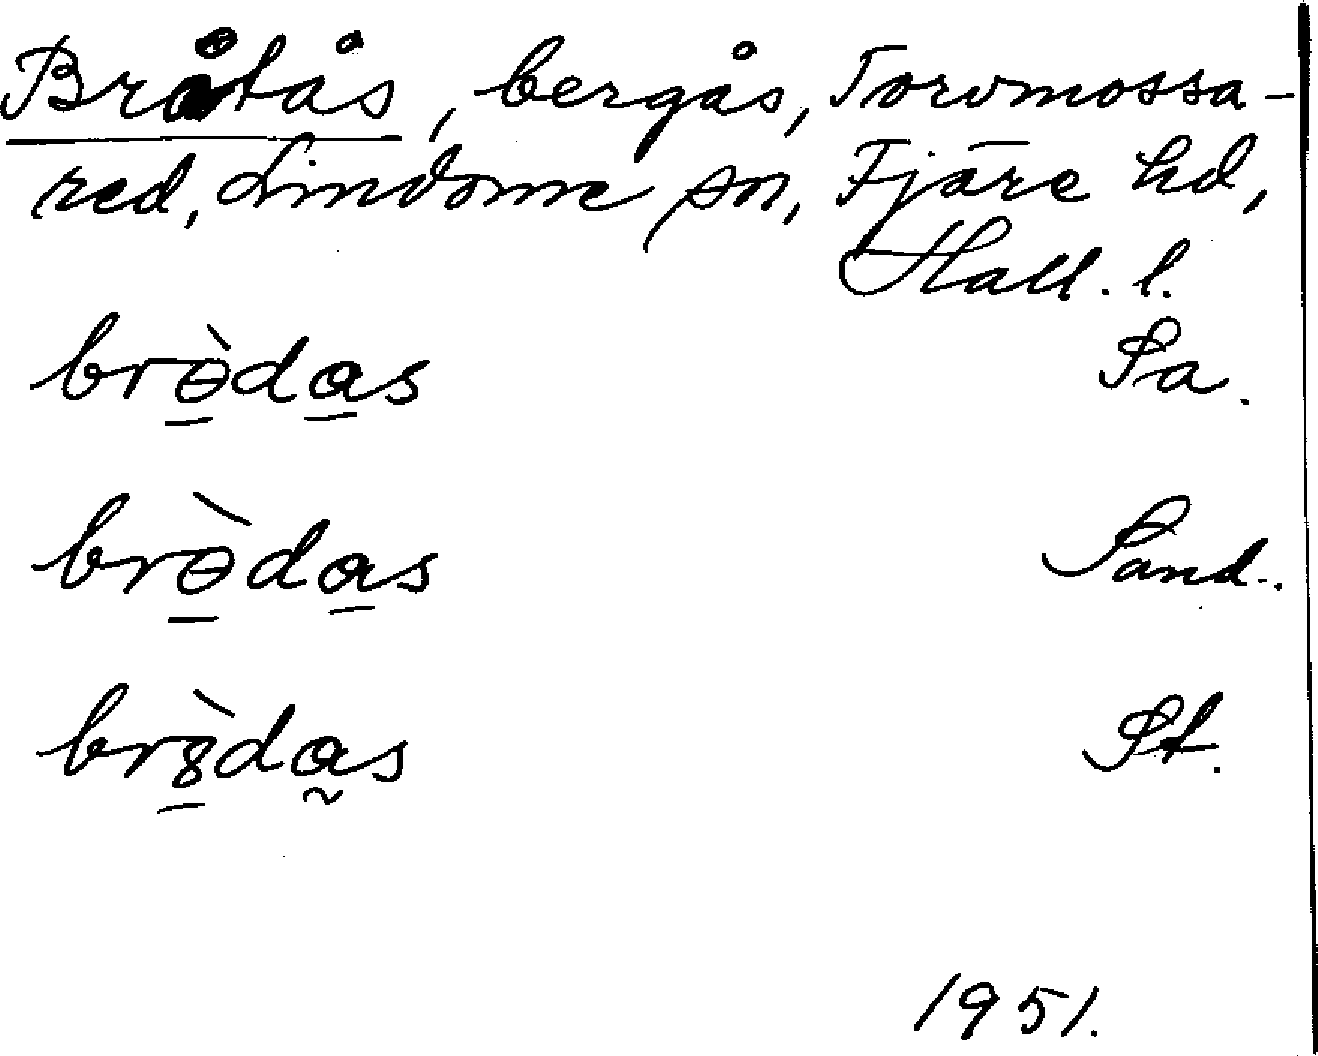 Bråtås, bergås, Torvmossa-
red, Lindome sn, Fjäre hd,
Hall. l.
brɵ̀das Sa.
brɵ̀das Sand.
br8̀das St.
1951.